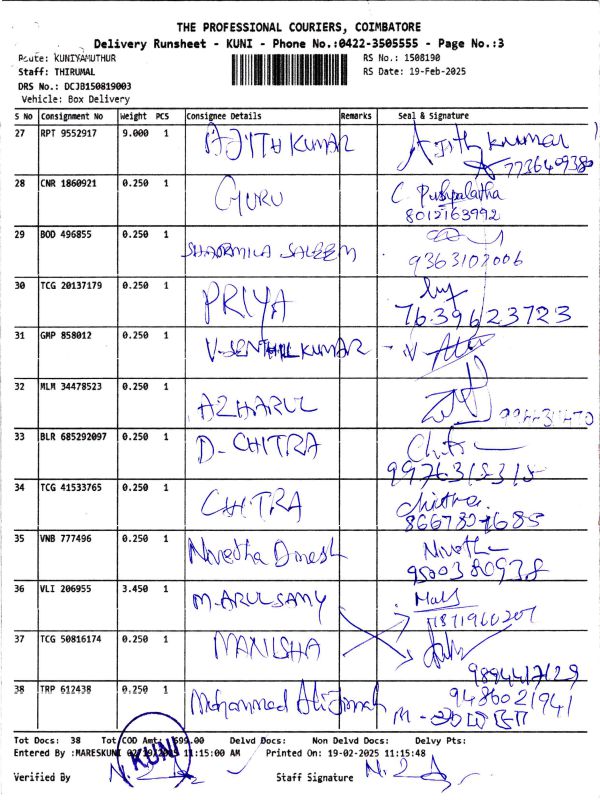 THE PROFESSIONAL COURIERS, COIMBATORE
Delivery Runsheet - KUNI - Phone No.:0422-3505555 - Page No.:3
Route: KUNIYAMUTHUR RS No.: 1508190
Staff: THIRUMAL RS Date: 19-Feb-2025
DRS No.: DCJB150819003
Vehicle: Box Delivery
S No Consignment No Weight PCS Consignee Details Remarks Seal & Signature
27 RPT 9552917 9.000 1 AJITH KUMAR Ajith kumar
7736409380
28 CNR 1860921 0.250 1 GURU C. Pushpalatha
8012163992
29 BOD 496855 0.250 1 SHARMILA SALEEM
9363102006
30 TCG 20137179 0.250 1 PRIYA
7639623723
31 GMP 858012 0.250 1 V-SENTHIL KUMAR
32 MLM 34478523 0.250 1 AZHARUL
33 BLR 685292097 0.250 1 D-CHITRA
9976315315
34 TCG 41533765 0.250 1 CHITRA Chithra.
35 VNB 777496 0.250 1 Nivedha Dinesh Nivetha
9500380938
36 VLI 206955 3.450 1 M.ARULSAMY
37 TCG 50816174 0.250 1 MANISHA
38 TRP 612438 0.250 1 Mohammed Ali Jinnah 9486021941
Tot Docs: 38 Tot COD Amt: 699.00 Delvd Docs: Non Delvd Docs: Delvy Pts:
Entered By :MARESKUNI 02/19/2025 11:15:00 AM Printed On: 19-02-2025 11:15:48
KUNI
Verified By Staff Signature